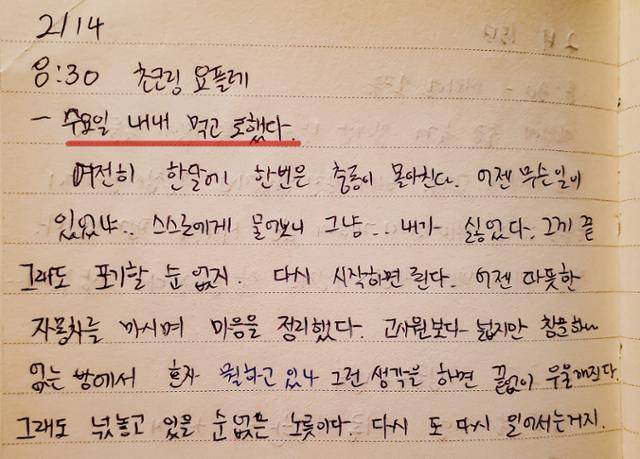 2/14
8:30 초코링 요플레
- 수요일 내내 먹고 토했다.
여전히 한달에 한번은 충동이 몰아친다. 어젠 무슨일이
있었나.. 스스로에게 물어보니 그냥... 내가 싫었다. 그게 끝
그래도 포기할 순 없지. 다시 시작하면 된다. 어젠 따뜻한
자몽차를 마시며 마음을 정리했다. 고시원보다 넓지만 창문하나
없는 방에서 혼자 뭘하고 있나 그런 생각을 하면 끝없이 우울해진다.
그래도 넋놓고 있을 순 없는 노릇이다. 다시 또 다시 일어서는거지.